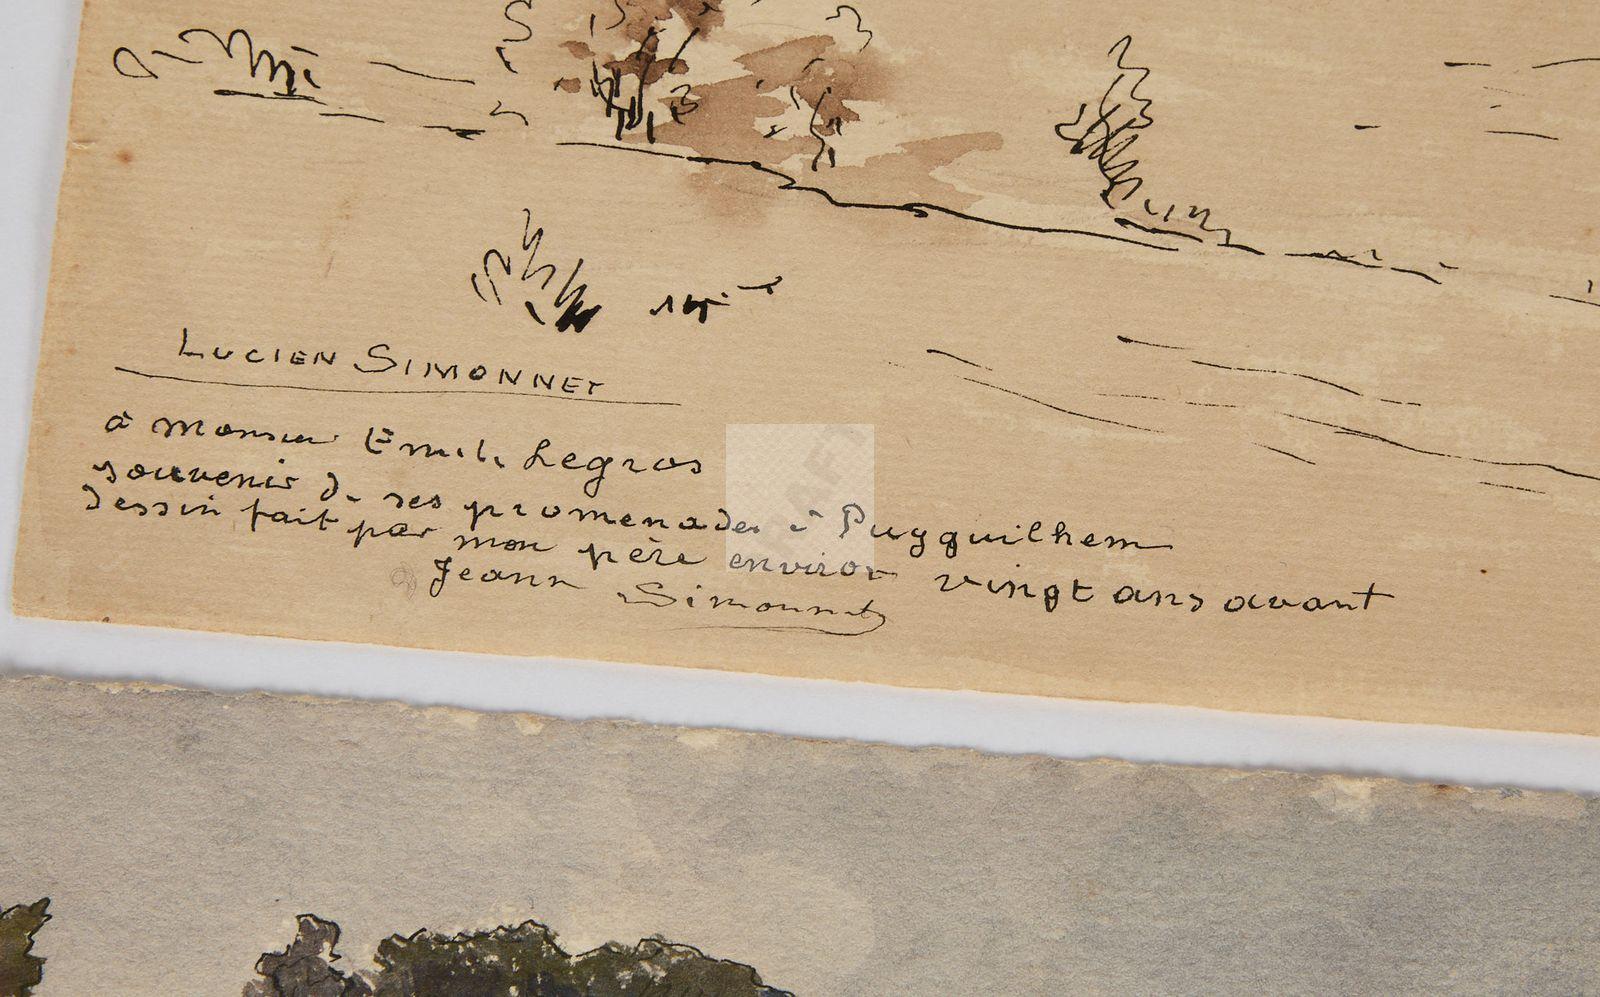 LUCIEN SIMONNET
à monsieur Emile Legros
souvenir de ses promenades à Puyguilhem
dessin fait par mon père environ vingt ans avant
Jeanne Simonnet